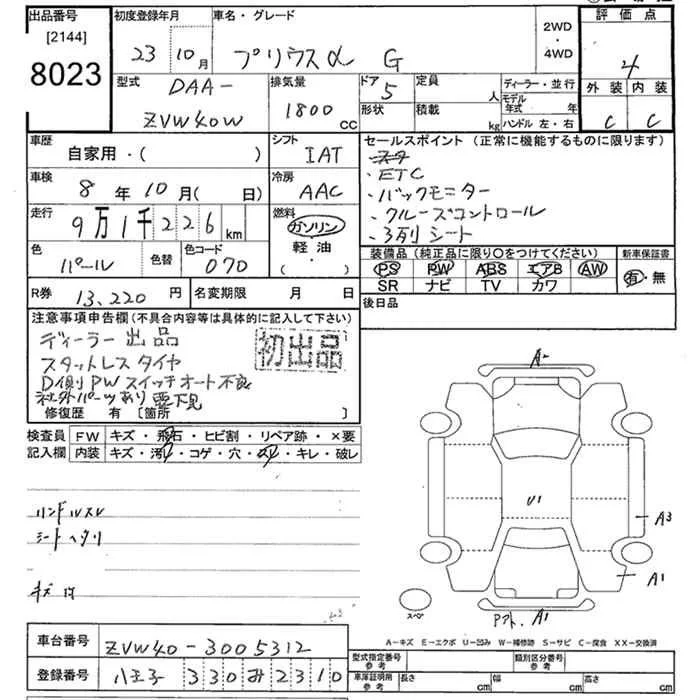 出品番号 初度登録年月 車名・グレード 2WD・4WD 評価点
[2144]
8023 23 10月 プリウスα G 4
型式 DAA- 排気量 ドア 5 定員 人 ディーラー・並行 外装 内装
ZVW40W 1800 CC 形状 積載 kg モデル年式 年 C C
ハンドル 左・右
車歴 シフト セールスポイント (正常に機能するものに限ります)
自家用・( ) IAT
・ETC
車検 8年10月( 日) 冷房 AAC ・バックモニター
走行 9万1千226km 燃料 ガソリン ・クルーズコントロール
軽油 ・3列シート
色 パール 色替 色コード 070 ( ・ ) 装備品 (純正品に限り○をつけてください) 新車保証書
PS PW ABS エアB AW 有・無
SR ナビ TV カワ
R券 13,220円 名変期限 月 日 後日品
注意事項申告欄(不具合内容等は具体的に記入して下さい)
ディーラー出品 初出品
スタットレスタイヤ
D側PWスイッチオート不良
社外パーツあり要下見
修復歴 有 [箇所 ]
A-
検査員 FW キズ・飛石・ヒビ割・リペア跡・×要
記入欄 内装 キズ・汚レ・コゲ・穴・スレ・キレ・破レ
U1
ハンドルスレ
A3
シートヘタリ
A1
キズ
スペア
Pアト. A1
A-キズ E-エクボ U-凹み W-補修跡 S-サビ C-腐食 XX-交換済
車台番号 ZVW40-3005312
型式指定番号 参考 類別区分番号 参考
登録番号 八王子 330 み 2310
車庫証明用 参考 長さ cm 幅 cm 高さ cm